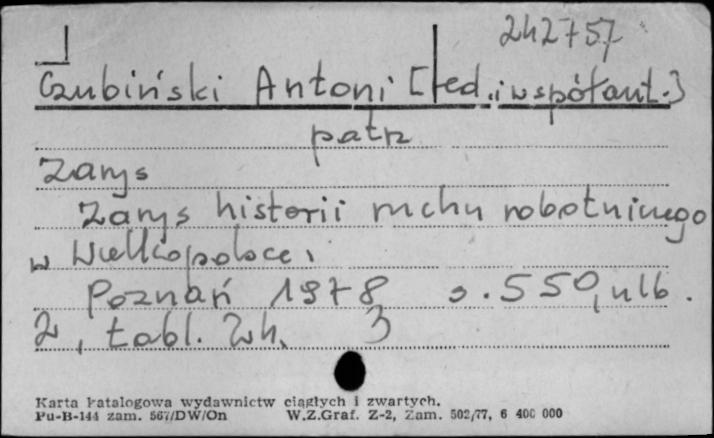 242757
Czubiński Antoni [red. i współaut.]
patrz
Zarys
Zarys historii ruchu robotniczego
w Wielkopolsce.
Poznań 1978 s. 550, nlb.
2, tabl. 3
Karta katalogowa wydawnictw ciągłych i zwartych.
Pu-B-144 zam. 567/DW/On W.Z.Graf. Z-2, Zam. 502/77, 6 400 000